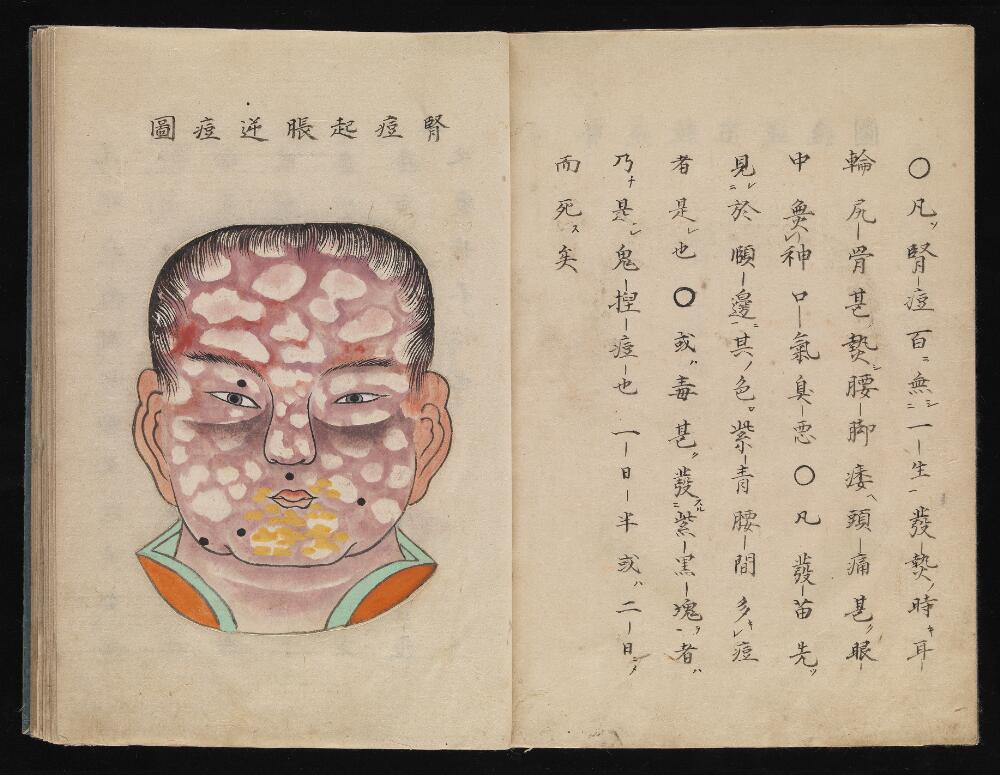 〇凡ソ腎痘百ニ無シ一生發熱ノ時キ耳
輪尻骨甚熱シ腰脚痿ヘ頭痛甚ク眼
中無レ神口氣臭悪〇凡發苗先ツ
見レ於頤邊ニ其ノ色紫青腰間多キレ痘
者是レ也〇或ハ毒甚ク發スル紫黒塊ヲ者ハ
乃チ是レ鬼捏痘也一日半或ハ二日ニノ
而死ス矣
腎痘起脹逆痘圖